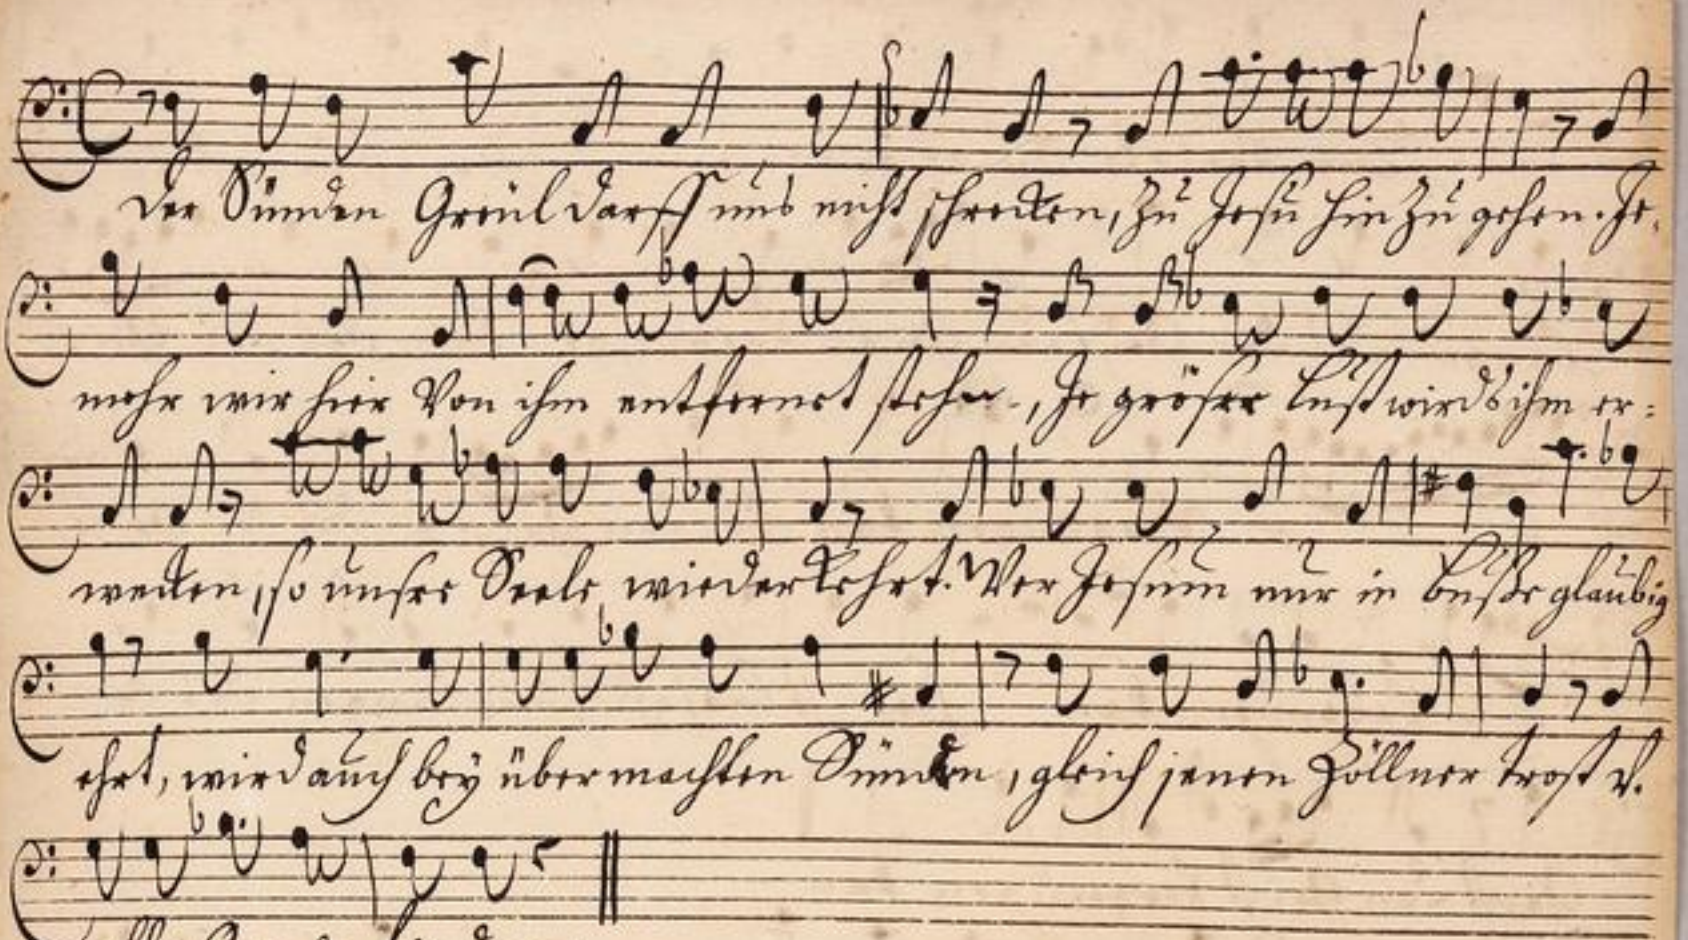 Der Sünden Greül darff uns nicht schrecken, Zu Jesu hin zu gehen. Je-
mehr wir hier Von ihm entfernet stehn, Je gröser Lust wirds ihm er=
wecken, so unsre Seele wiederkehrt. Wer Jesum nur in Buße glaubig
ehrt, wird auch bey übermachten Sünden, gleich jenen Zöllner trost u.